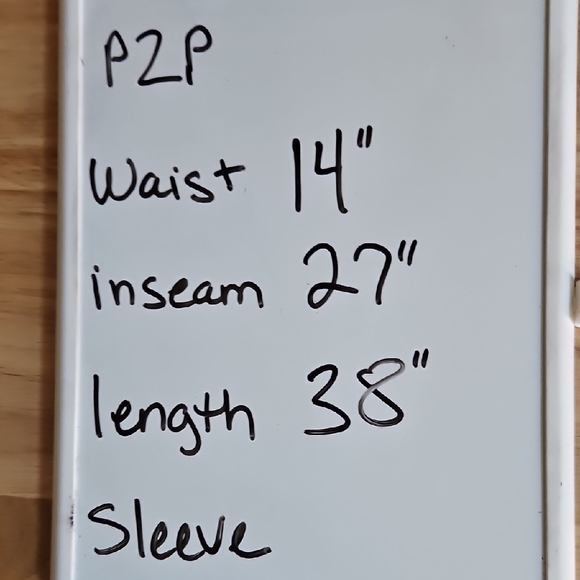 P2P
Waist 14"
inseam 27"
length 38"
Sleeve